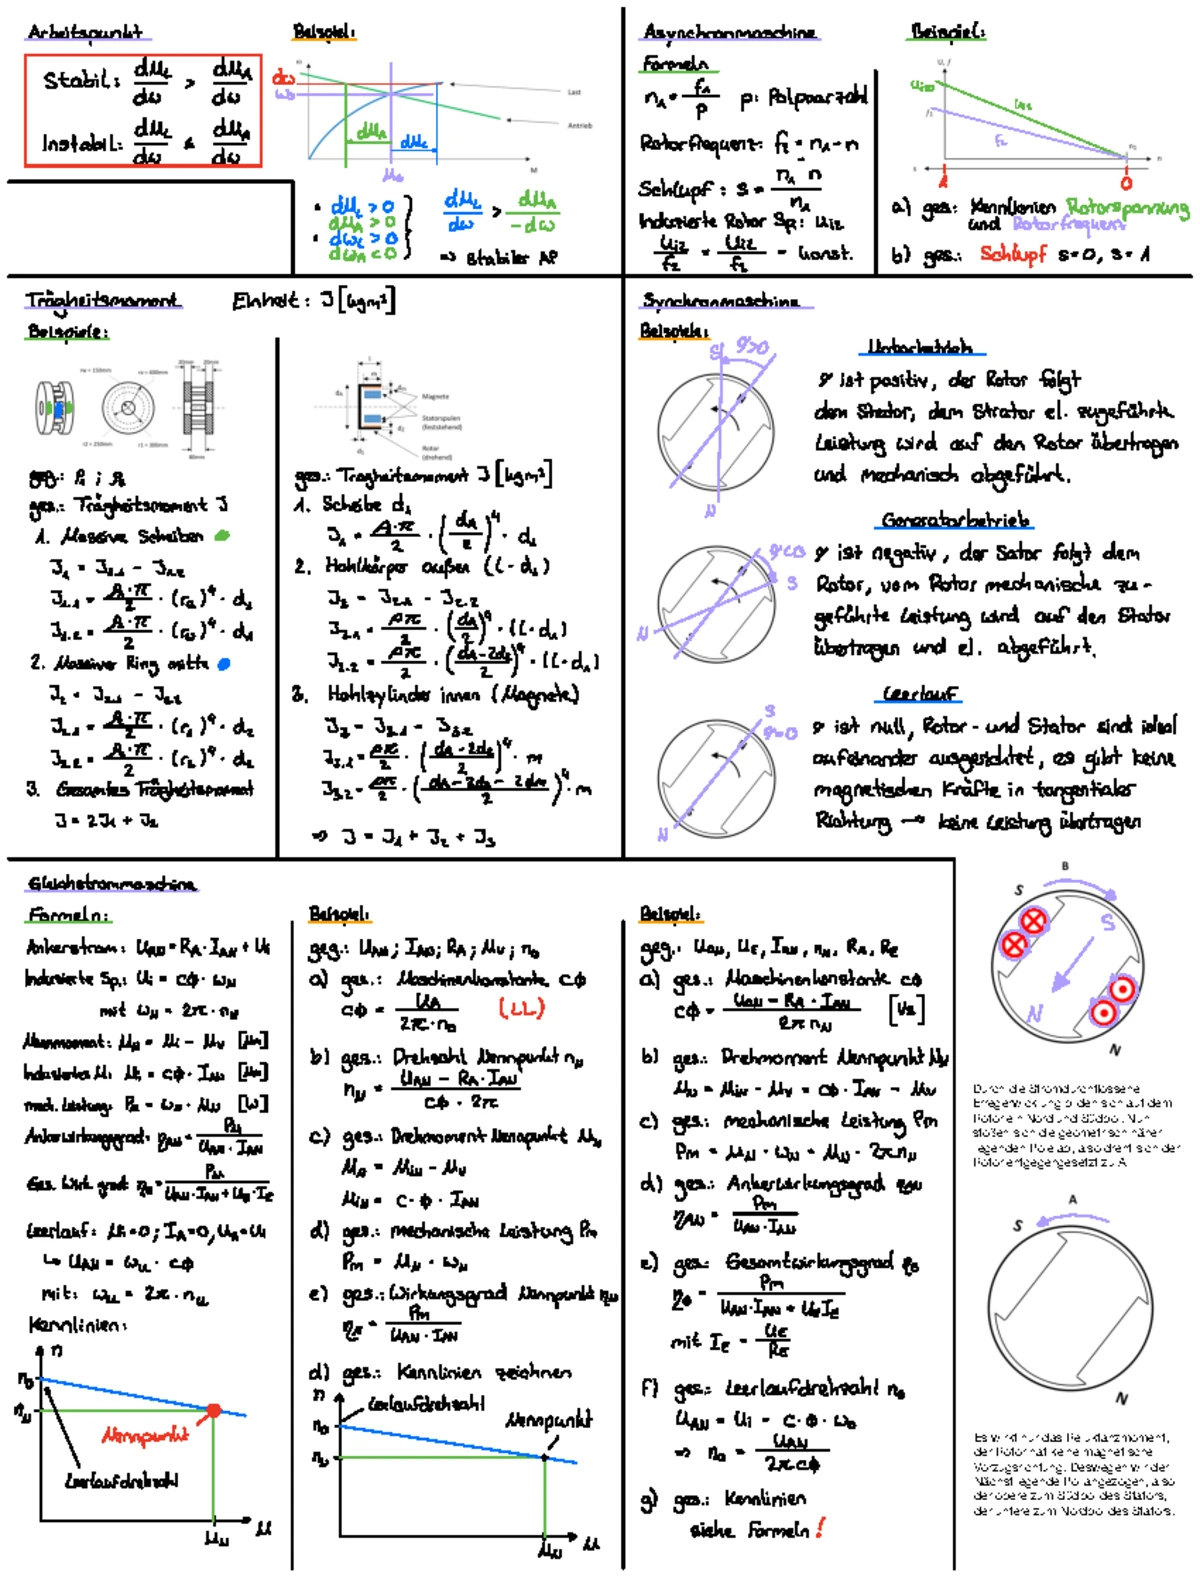 Arbeitspunkt
Stabil: dM_L/dω > dM_A/dω
Instabil: dM_L/dω < dM_A/dω
Beispiel:
dω
Last
Antrieb
dM_A
dM_L
M
• dM_L > 0
dM_A > 0
• dω_L > 0
dω_A < 0
dM_L/dω > dM_A/-dω
⇒ stabiler AP
Asynchronmaschine
Formeln
n_1 = f_1/p p: Polpaarzahl
Rotorfrequenz: f_2 = n_1 - n
Schlupf: s = n_1 - n/n_1
Induzierte Rotor Sp: U_i2
U_i2/f_2 = U_i2/f_2 = konst.
Beispiel:
U, f
f_2
n
s
1
0
a) ges: Kennlinien Rotorspannung
und Rotorfrequenz
b) ges.: Schlupf s=0, s=1
Trägheitsmoment Einheit: J [kgm²]
Beispiele:
ra = 150mm
ra = 400mm
r2 = 250mm
r1 = 300mm
20mm 20mm
80mm
ges.: Trägheitsmoment J
1. Massive Scheiben
J_1 = J_1.1 - J_1.2
2. Massiver Ring mitte
J_2 = J_2.1 - J_2.2
3. Gesamtes Trägheitsmoment
J = 2J_1 + J_2
l
m
Magnete
Statorspulen
(feststehend)
Rotor
(drehend)
ges.: Trägheitsmoment J [kgm²]
1. Scheibe d_1
2. Hohlkörper außen (l - d_1)
J_2 = J_2.1 - J_2.2
3. Hohlzylinder innen (Magnete)
J_3 = J_3.1 - J_3.2
⇒ J = J_1 + J_2 + J_3
Synchronmaschine
Beispiele:
S
φ>0
N
φ ist positiv, der Rotor folgt
den Stator, dem Strator el. zugeführte
Leistung wird auf den Rotor übertragen
und mechanisch abgeführt.
Generatorbetrieb
φ<0
S
N
φ ist negativ, der Sator folgt dem
Rotor, vom Rotor mechanische zu-
geführte Leistung wird auf den Stator
übertragen und el. abgeführt.
Leerlauf
S
φ=0
N
φ ist null, Rotor- und Stator sind ideal
aufeinander ausgerichtet, es gibt keine
magnetischen Kräfte in tangentialer
Richtung → keine Leistung übertragen
Gleichstrommaschine
Formeln:
Ankerstrom: U_AN = R_A · I_AN + U_i
Induzierte Sp: U_i = cΦ · ω_N
mit ω_N = 2π · n_N
Nennmoment: M_N = M_i - M_V [Nm]
Induziertes M: M_i = cΦ · I_AN [Nm]
mech. Leistung: P_m = ω_N · M_N [W]
Ankerwirkungsgrad: η_AN = P_M/U_AN · I_AN
Ges. Wirk. grad: η_G = P_M/U_AN · I_AN + U_E · I_E
Leerlauf: M=0; I_A=0, U_A=U_i
↳ U_AN = ω_LL · cΦ
mit: ω_LL = 2π · n_LL
Kennlinien:
n
n_0
n_N
Nennpunkt
Leerlaufdrehzahl
M_N
M
Beispiel:
geg.: U_AN; I_AN; R_A; M_V; n_0
a) ges.: Maschinenkonstante cΦ
cΦ = U_A/2π · n_0 (LL)
b) ges.: Drehzahl Nennpunkt n_N
n_N = U_AN - R_A · I_AN/cΦ · 2π
c) ges.: Drehmoment Nennpunkt M_N
M_N = M_iN - M_V
M_iN = c · Φ · I_AN
d) ges.: mechanische Leistung P_m
P_m = M_N · ω_N
e) ges.: Wirkungsgrad Nennpunkt
P_m/U_AN · I_AN
d) ges.: Kennlinien zeichnen
n
Leerlaufdrehzahl
n_0
Nennpunkt
n_N
M_N
M
Beispiel:
geg.: U_AN, U_E, I_AN, n_N, R_A, R_E
a) ges.: Maschinenkonstante cΦ
cΦ = U_AN - R_A · I_AN/2π n_N [Vs]
b) ges.: Drehmoment Nennpunkt M_N
M_N = M_iN - M_V = cΦ · I_AN - M_V
c) ges.: mechanische Leistung P_m
P_m = M_N · ω_N = M_N · 2π n_N
d) ges.: Ankerwirkungsgrad η_AN
η_AN = P_m/U_AN · I_AN
e) ges: Gesamtwirkungsgrad η_G
η_G = P_m/U_AN · I_AN + U_E I_E
mit I_E = U_E/R_E
f) ges.: Leerlaufdrehzahl n_0
U_AN = U_i = c · Φ · ω_0
⇒ n_0 = U_AN/2π cΦ
g) ges.: Kennlinien
siehe Formeln!
B
S
S
N
N
Durch die Stromdurchflossene
Erregerwicklung bilden sich auf dem
Rotor ein Nord und Südpol. Nun
stoßen sich die geometrisch näher
liegenden Pole ab, also dreht sich der
Rotor entgegengesetzt zu A
A
S
N
Es wirkt nur das Reluktanzmoment,
der Rotor hat keine magnetische
Vorzugsrichtung. Deswegen wir der
Nächstliegende Pol angezogen, also
der obere zum Südpol des Stators,
der untere zum Nordpol des Stators.